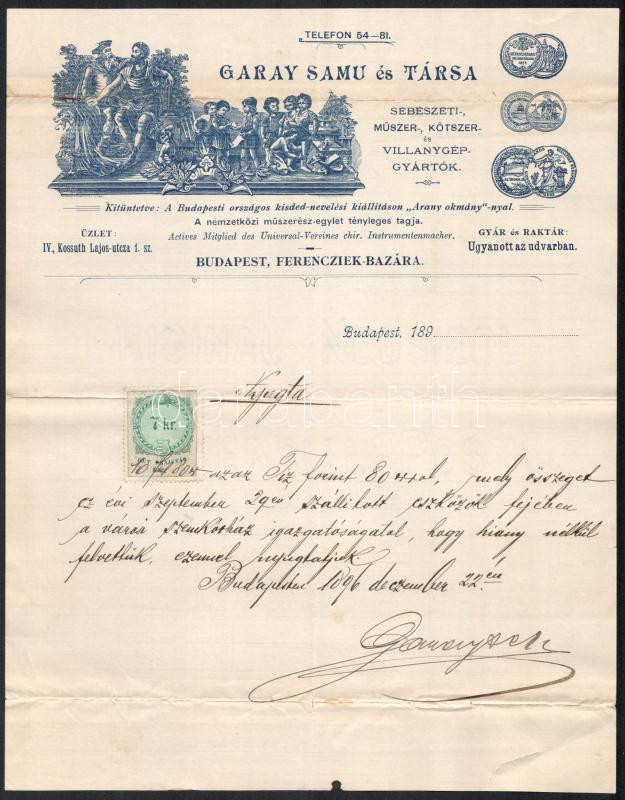 TELEFON 54—81.
GARAY SAMU és TÁRSA
SEBÉSZETI-,
MŰSZER-, KÖTSZER-
és
VILLANYGÉP-
GYÁRTÓK.
Kitüntetve: A Budapesti országos kisded-nevelési kiállitáson „Arany okmány"-nyal.
A nemzetközi műszerész-egylet tényleges tagja.
Actives Mitglied des Universal-Vereines chir. Instrumentenmacher.
ÜZLET:
IV., Kossuth Lajos-utcza 1. sz.
GYÁR és RAKTÁR:
Ugyanott az udvarban.
BUDAPEST, FERENCZIEK-BAZÁRA.
Budapest, 189
Nyugta
7 kr.
azaz Tiz forint 80 krról, mely összeget
ez évi szeptember 2- szállitott eszközök fejében
a városi szemkórház igazgatóságától, hogy hiany nélkül
felvettük, ezennel nyugtatjuk
Budapesten 1896 deczember 22én
darabanth